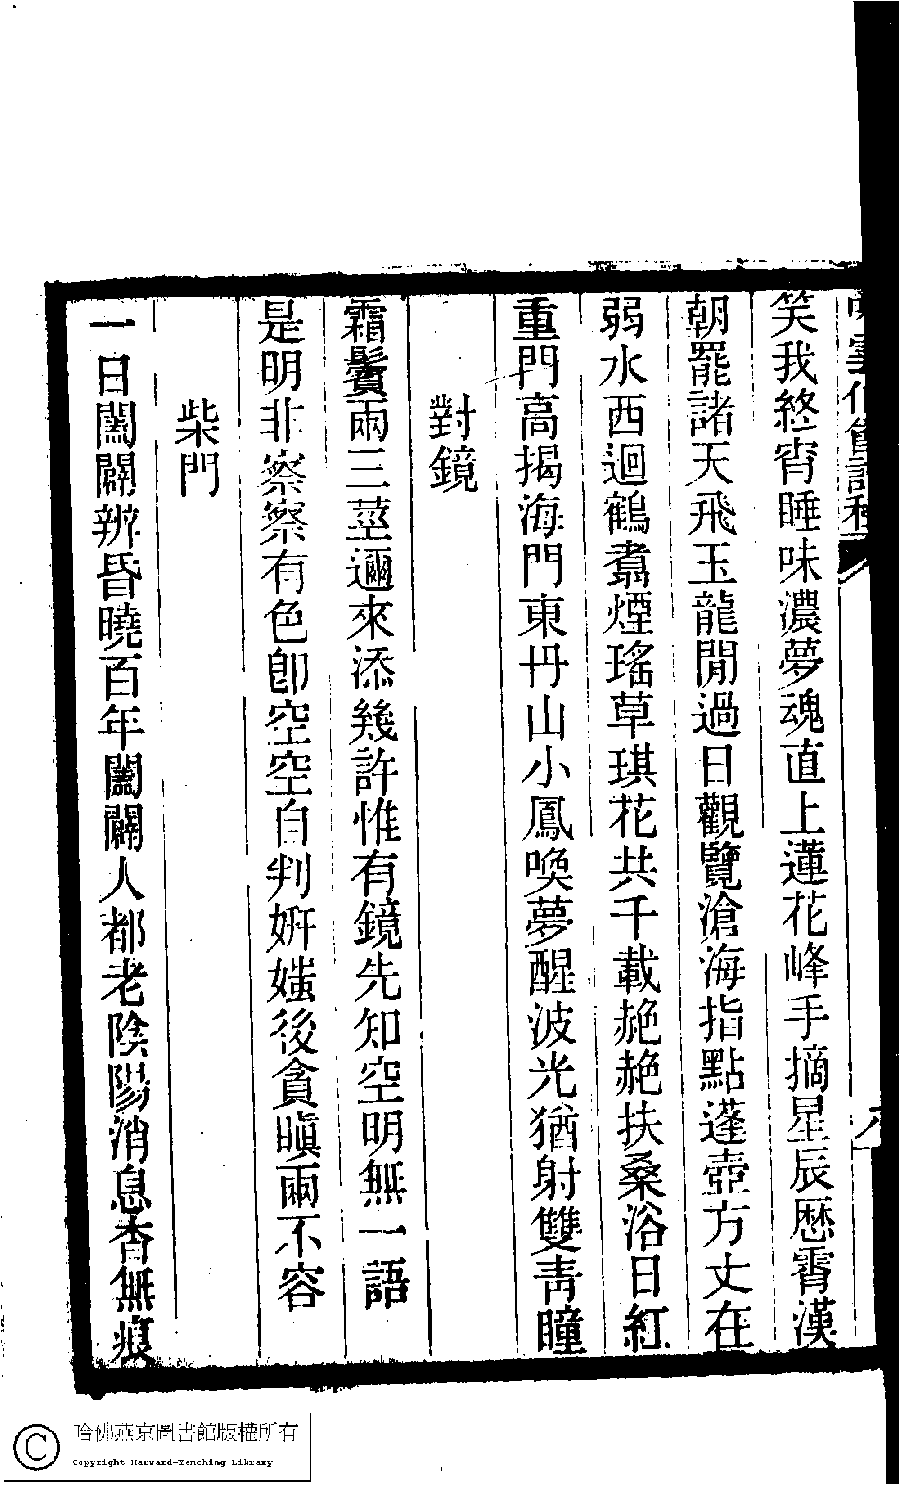 笑我終宵睡味濃夢魂直上蓮花峰手摘星辰歷霄漢
朝罷諸天飛玉龍閒過日觀覽滄海指點蓬壺方丈在
弱水西迴鶴翥煙瑤草琪花共千載赩赩扶桑浴日紅
重門高揭海門東丹山小鳳喚夢醒波光猶射雙青瞳
對鏡
霜鬢兩三莖邇來添幾許惟有鏡先知空明無一語
是明非察察有色卽空空自判妍媸後貪瞋兩不容
柴門
一日闔闢辨昏曉百年闔闢人都老陰陽消息杳無痕
哈佛燕京圖書館版權所有
Copyright Harvard-Yenching Library